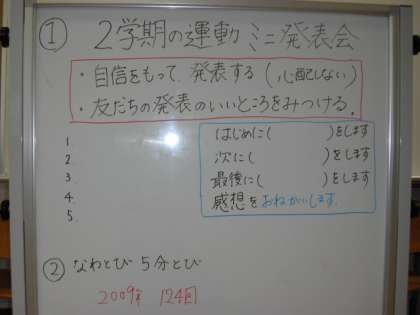 ① 2学期の運動ミニ発表会
・自信をもって発表する(心配しない)
・友だちの発表のいいところをみつける。
1.
2
3
4.
5.
はじめに(　　　)をします
次に(　　　)をします
最後に(　　　)をします
感想をおねがいします.
② なわとび 5分とび
2009年 124回